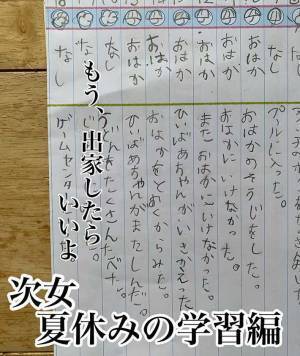 なし
プールに入った。
おはか
おはかのそうじをした。
おはか
おはかにいけなかった。
おはか
またおはかにいけなかった。
おはか
ひいばあちゃんがいきかえった。
おはか
おはかをとおくからみた。
おはか
ひいばあちゃんがまたしんだ。
なし
どんをたくさんたべた。
なし
なし
ゲームセンター
もう、出家したら
いいよ
次女
夏休みの学習編